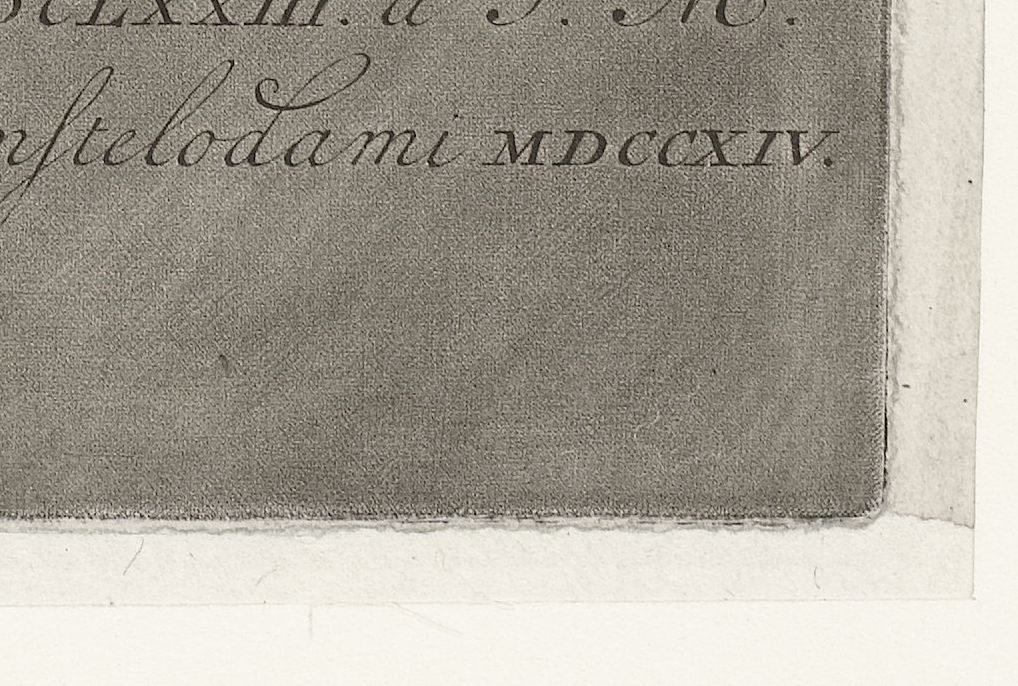 cLXXIII. a J. M.
mſtelodami MDCCXIV.